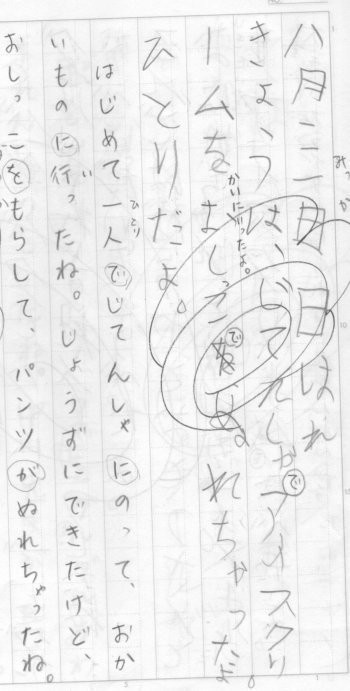 八月三日日はれ
みっか
きょうは、じてんしゃでアイスクリ
ームをおしっこでぬれちゃったよ。
かいにいったよ。
ひとりだよ。
はじめて一人でじてんしゃにのって、おか
ひとり
いものに行ったね。じょうずにできたけど、
い
おしっこをもらして、パンツがぬれちゃったね。